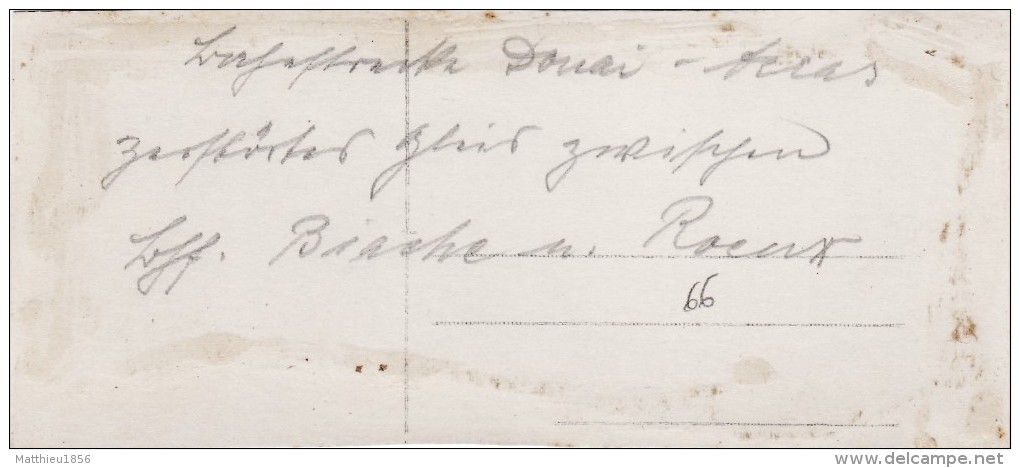 Bahnstrecke Douai - Arras
zerstörtes Gleis zwischen
Bhf. Biache u. Roeux
66
Matthieu1856
delcampe.net